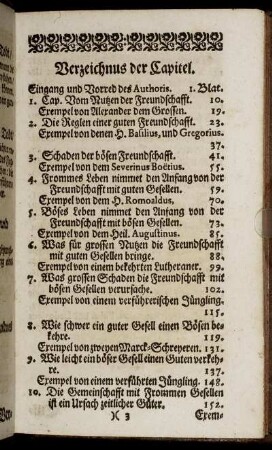 Verzeichnus der Capitel.
Eingang und Vorred des Authoris. 1. Blat.
1. Cap. Vom Nutzen der Freundschafft. 10.
Exempel von Alexander dem Grossen. 19.
2. Die Reglen einer guten Freundschafft. 23.
Exempel von denen H. Basilius, und Gregorius.
37.
3. Schaden der bösen Freundschafft. 41.
Exempel von dem Severinus Boëtius. 55.
4. Frommes Leben nimmet den Anfang von der
Freundschafft mit guten Gesellen. 59.
Exempel von dem H. Romoaldus. 70.
5. Böses Leben nimmet den Anfang von der
Freundschafft mit bösen Gesellen. 73.
Exempel von dem Heil. Augustinus. 85.
6. Was für grossen Nutzen die Freundschafft
mit guten Gesellen bringe. 88.
Exempel von einem bekehrten Lutheraner. 99.
7. Was grossen Schaden die Freundschafft mit
bösen Gesellen verursache. 102.
Exempel von einem verführerischen Jüngling.
115.
8. Wie schwer ein guter Gesell einen Bösen be-
kehre. 119.
Exempel von zweyen Marck-Schreyeren. 131.
9. Wie leicht ein böser Gesell einen Guten verkeh-
re. 137.
Exempel von einem verführten Jüngling. 148.
10. Die Gemeinschafft mit Frommen Gesellen
ist ein Ursach zeitlicher Güter. 152.
)( 3 Exem-